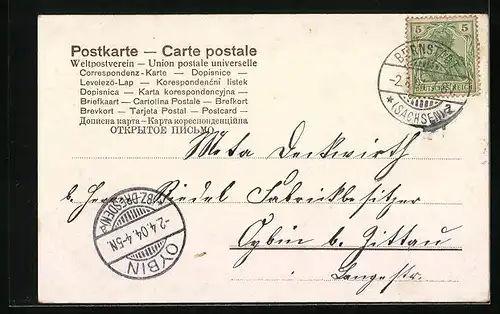 Postkarte — Carte postale
Weltpostverein — Union postale universelle
Correspondenz-Karte — Dopisnice —
Levelező-Lap — Korespondenční listek
Dopisnica — Karta korespondencyjna —
Briefkaart — Cartolina Postale — Brefkort
Brevkort — Tarjeta Postal — Postcard —
Дописна карта — Карта кореспонденційна
ОТКРЫТОЕ ПИСЬМО
5 5
DEUTSCHES REICH
(SACHSEN)
Meta Deckwirth
b. Herrn Riedel Fabrikbesitzer
Oybin b. Zittau
Langestr.
OYBIN
-2.4.04.4-5N.
(BZ. DRESDEN)